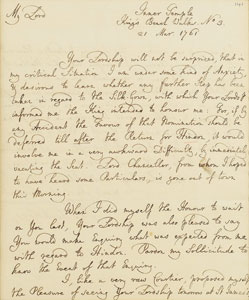 My Lord
Inner Temple
Kings Bench Walk No. 3.
21 Mar. 1761
Your Lordship will not be surprized, that in
my critical Situation I am under some kind of Anxiety,
& desirous to learn, whether any further Step has been
taken in regard to the Silk Gown, with which your Lordsp
informed me the King intended to honour me. For, if by
any Accident the Favour of that Nomination should be
deferred till after the Return for Hindon, it would
involve me in a very awkward Difficulty, by immediately
vacating the Seat. Lord Chancellor, from whom I hoped
to have heard some Particulars, is gone out of town
this Morning.
When I did myself the Honour to wait
on you last, Your Lordship was also pleased to say
You would make Enquiry what was expected from me
with regard to Hindon. Pardon my Sollicitude to
have the Event of that Enquiry.
I, like a very rude Courtier, proposed myself
the Pleasure of seeing Your Lordship